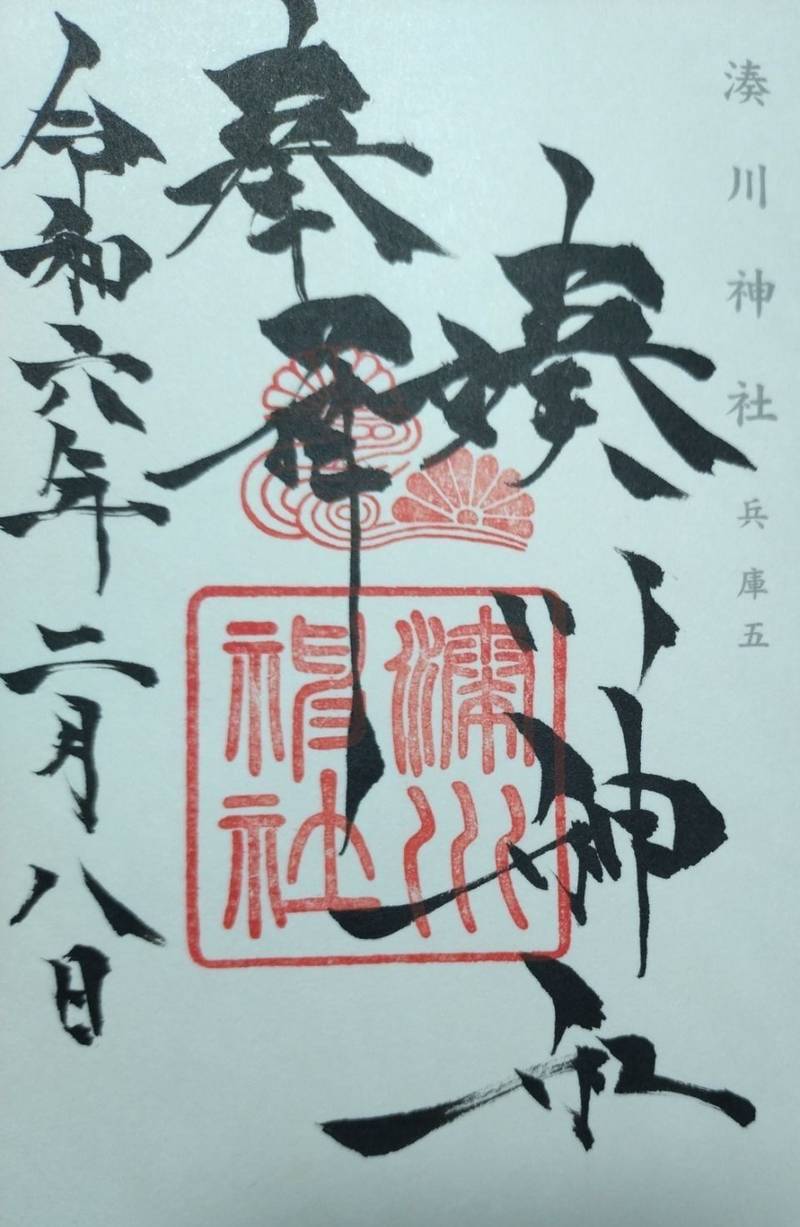 湊川神社 兵庫五
湊川神社
奉拝
湊川
神社
令和六年二月八日